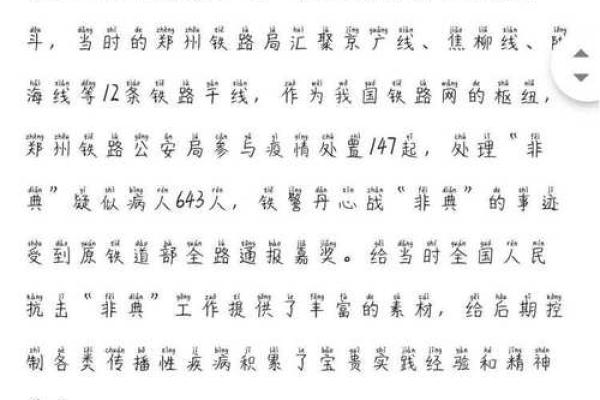 斗，当时的郑州铁路局汇聚京广线、焦柳线、陇
海线等12条铁路干线，作为我国铁路网的枢纽，
郑州铁路公安局参与疫情处置147起，处理“非
典”疑似病人643人，铁警丹心战“非典”的事迹
受到原铁道部全路通报嘉奖。给当时全国人民
抗击“非典”工作提供了丰富的素材，给后期控
制各类传播性疾病积累了宝贵实践经验和精神